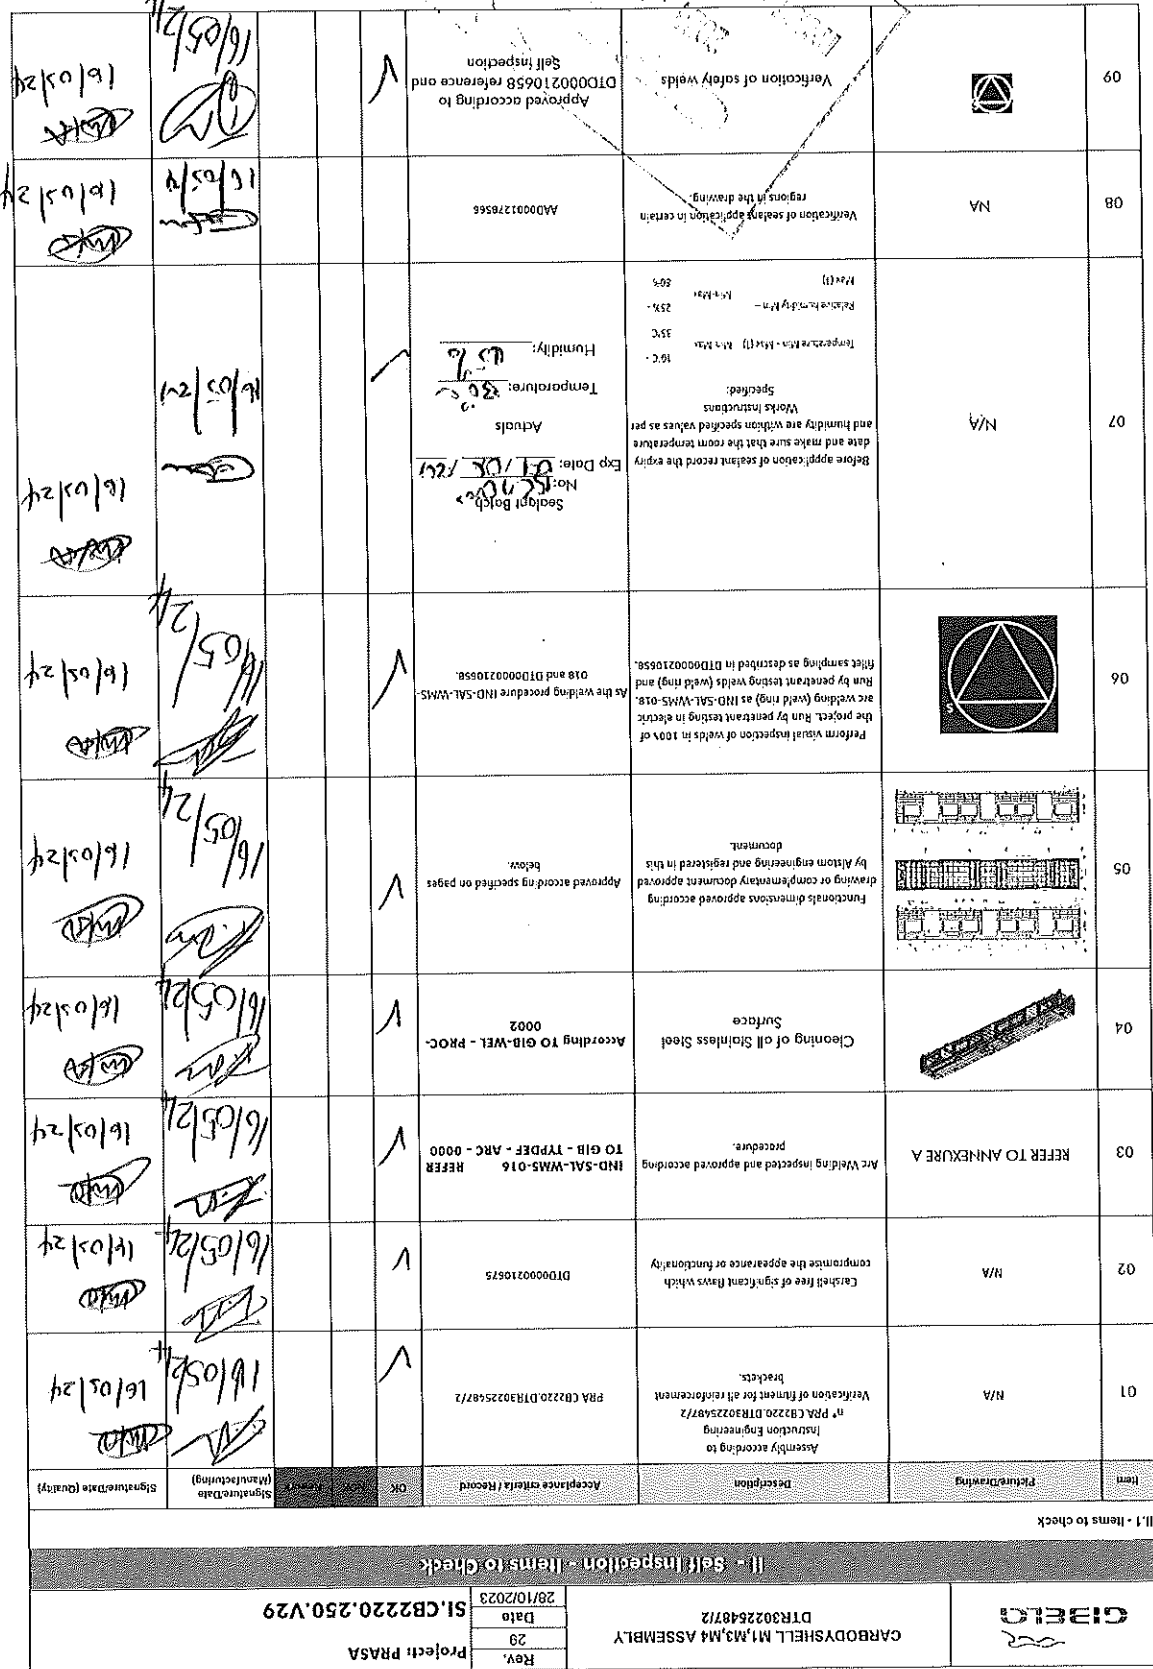 GIBELA
CARBODYSHELL M1,M3,M4 ASSEMBLY
DTR3022548​7/2
Rev.
29
Date
28/10/2023
Project: PRASA
SI.CB2220.250.V29
II - Self Inspection - Items to Check
II.1 - Items to check
Item
Picture/Drawing
Description
Acceptance criteria / Record
OK
Signature/Date (Manufacturing)
Signature/Date (Quality)
01
N/A
Assembly according to
Instruction Engineering
n° PRA CB2220.DTR30225487/2
Verification of fitment for all reinforcement
brackets.
PRA CB2220.DTR30225487/2
16/05/24
16/05/24
02
N/A
Carshell free of significant flaws which
compromise the appearance or functionality
DTD0000210675
16/05/24
16/05/24
03
REFER TO ANNEXURE A
Arc Welding inspected and approved according
procedure.
IND-SAL-WMS-016 REFER
TO GIB - TYPDEF - ARC - 0000
16/05/24
16/05/24
04
Cleaning of all Stainless Steel
Surface
According TO GIB-WEL - PROC-
0002
16/05/24
16/05/24
05
Functionals dimensions approved according
drawing or complementary document approved
by Alstom engineering and registered in this
document.
Approved according specified on pages
below.
16/05/24
16/05/24
06
S
Perform visual inspection of welds in 100% of
the project. Run by penetrant testing in electric
arc welding (weld ring) as IND-SAL-WMS-018.
Run by penetrant testing welds (weld ring) and
fillet sampling as described in DTD0000210658.
As the welding procedure IND-SAL-WMS-
018 and DTD0000210658.
16/05/24
16/05/24
07
N/A
Before application of sealant record the expiry
date and make sure that the room temperature
and humidity are withion specified values as per
Works Instructions
Specified:
Temperature Min - Max (1) Min Max 16°C -
35°C
Relative humidity Min - Min Max 25% -
Max (1) 80%
Sealant Batch
No:
Exp Date:
Actuals
Temparature: 30°C
Humidity:
16/05/24
16/05/24
08
NA
Verification of sealant application in certain
regions in the drawing.
AAD0001278566
16/05/24
16/05/24
09
Verfication of safety welds
Approved according to
DTD0000210658 reference and
Self Inspection
16/05/24
16/05/24